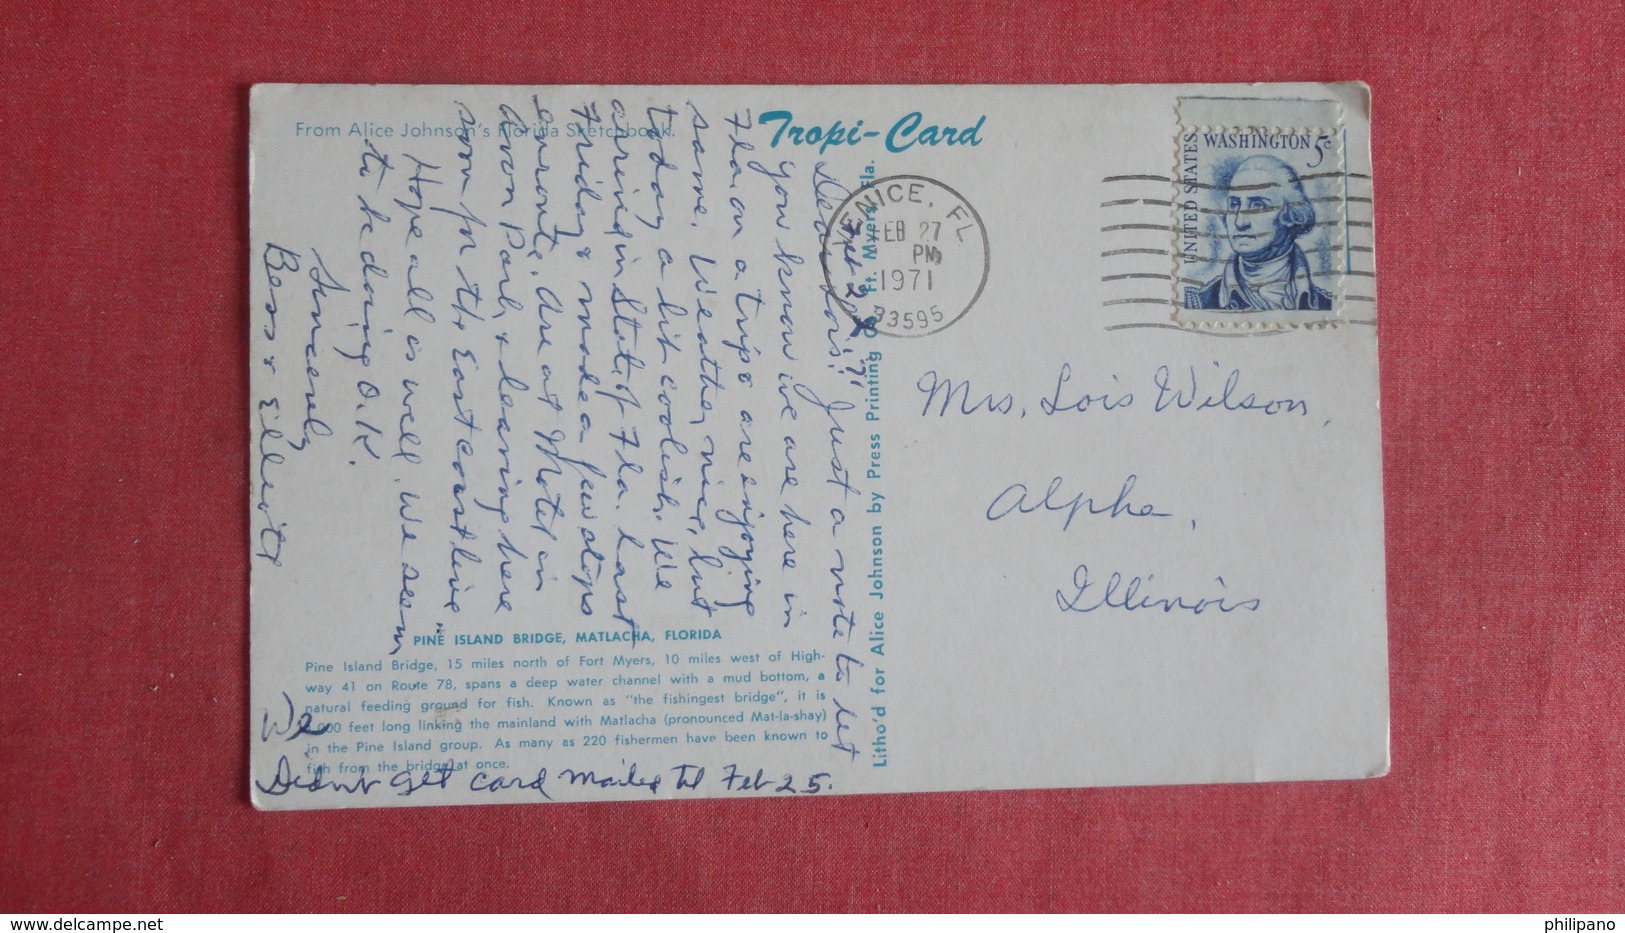 From Alice Johnson's Florida Sketchbook.
Tropi-Card
UNITED STATES
WASHINGTON 5c
VENICE, FL
FEB 27
PM
1971
33595
Feb 2 '71
Dear Lois: Just a note to let
you know we are here in
Fla on a trip & are enjoying
same. Weather nice, but
today a bit coolish. We
arrived in State of Fla. last
Friday & made a few stops
enroute. Are at Motel in
Avon Park, & leaving here
soon for the East coast line
Hope all is well. We seem
to be doing O.K.
Sincerely
Bess & Elliott
We
Didn't get card mailed til Feb 25.
PINE ISLAND BRIDGE, MATLACHA, FLORIDA
Pine Island Bridge, 15 miles north of Fort Myers, 10 miles west of High-
way 41 on Route 78, spans a deep water channel with a mud bottom, a
natural feeding ground for fish. Known as "the fishingest bridge", it is
000 feet long linking the mainland with Matlacha (pronounced Mat-la-shay)
in the Pine Island group. As many as 220 fishermen have been known to
fish from the bridge at once.
Litho'd for Alice Johnson by Press Printing Co., Ft. Myers, Fla.
Mrs. Lois Wilson,
Alpha,
Illinois
delcampe.net
philipano